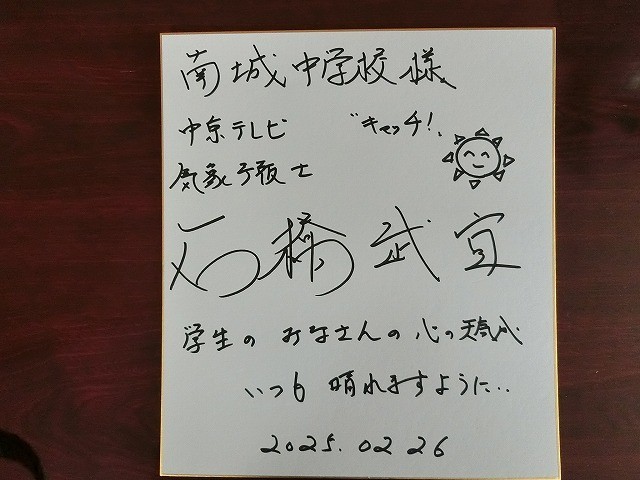 南城中学校様
中京テレビ "キャッチ!"
気象予報士
石橋武宜
学生のみなさんの心の天気が
いつも晴れますように..
2025.02 26